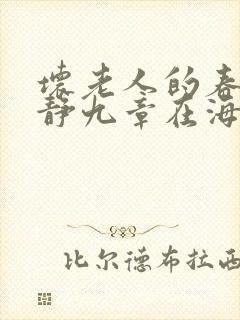 壞老人的春
靜九章在海
比尔德布拉西